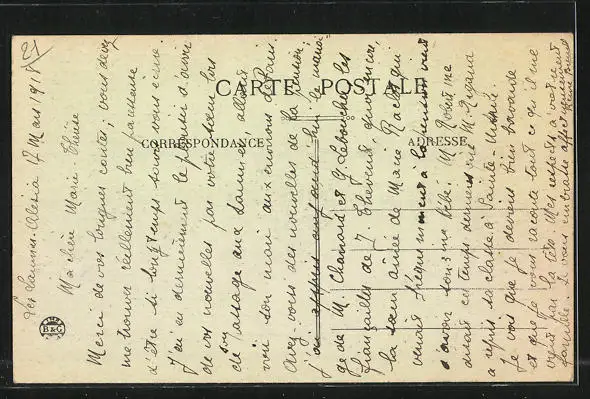 CARTE POSTALE
CORRESPONDANCE
ADRESSE
B&G
Les Laumes-Alésia 17 Mars 1918
Ma chère Marie Thérèse
Merci de vos longues cartes; vous devez
me trouver réellement bien paresseuse
d'être si longtemps sans vous écrire.
J'ai eu dernièrement le plaisir d'avoir
de vos nouvelles par votre sœur lors
de son passage aux Laumes, allant
voir son mari aux environs de Paris.
Avez-vous des nouvelles de la pension;
j'ai appris aujourd'hui le maria-
ge de M. Channard et G. Lebouchet les
fiançailles de J. Thevenet, quoi encore,
la sœur aînée de Marie Raclot qui
venait fréquemment à la pension vient
d'avoir son 3me bébé. M. Robert me
disait ces temps derniers que M. Rigaud
a repris sa classe à Sainte Ursule.
Je vois que je deviens bien bavarde
et que je vous raconte tout ce qu'il me
vient par la tête. Mes respects à votre
famille. Je vous embrasse affectueusement